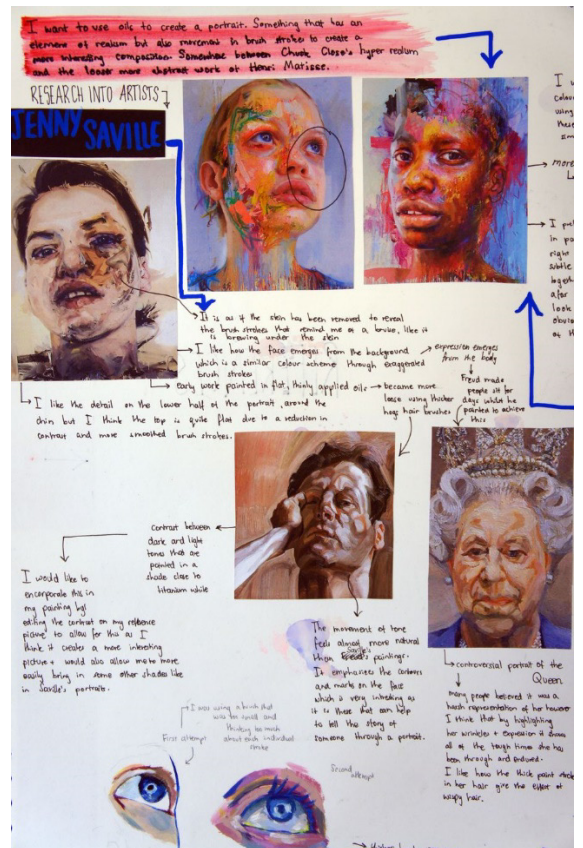 I want to use oils to create a portrait. Something that has an
element of realism but also movement in brush strokes to create a
more interesting composition. Somewhere between Chuck Close's hyper realism
and the looser more abstract work of Henri Matisse.
RESEARCH INTO ARTISTS
JENNY SAVILLE
It is as if the skin has been removed to reveal
the brush strokes that remind me of a bruise, like it
is brewing under the skin
I like how the face emerges from the background
which is a similar colour scheme through exaggerated
brush strokes
expression emerges
from the body
early work painted in flat, thinly applied oils
became more
loose using thicker
hogs hair brushes
Freud made
people sit for
days whilst he
painted to achieve
this
I like the detail on the lower half of the portrait, around the
chin but I think the top is quite flat due to a reduction in
contrast and more smoothed brush strokes.
contrast between
dark and light
tones that are
painted in a
shade close to
titanium white
I would like to
encorporate this in
my painting by
editing the contrast on my reference
picture to allow for this as I
think it creates a more interesting
picture + would also allow me to more
easily bring in some other shades like
in Saville's portrait.
The movement of tone
feels almost more natural
than Saville's paintings.
It emphasises the contours
and marks on the face
which is very interesting as
it is these that can help
to tell the story of
someone through a portrait.
controversial portrait of the
Queen
many people believed it was a
harsh representation of her however
I think that by highlighting
her wrinkles + expression it shows
all of the tough times she has
been through and endured.
I like how the thick paint strokes
in her hair give the effect of
wispy hair.
I was using a brush that
was too small and
thinking too much
about each individual
stroke
First attempt
Second
attempt